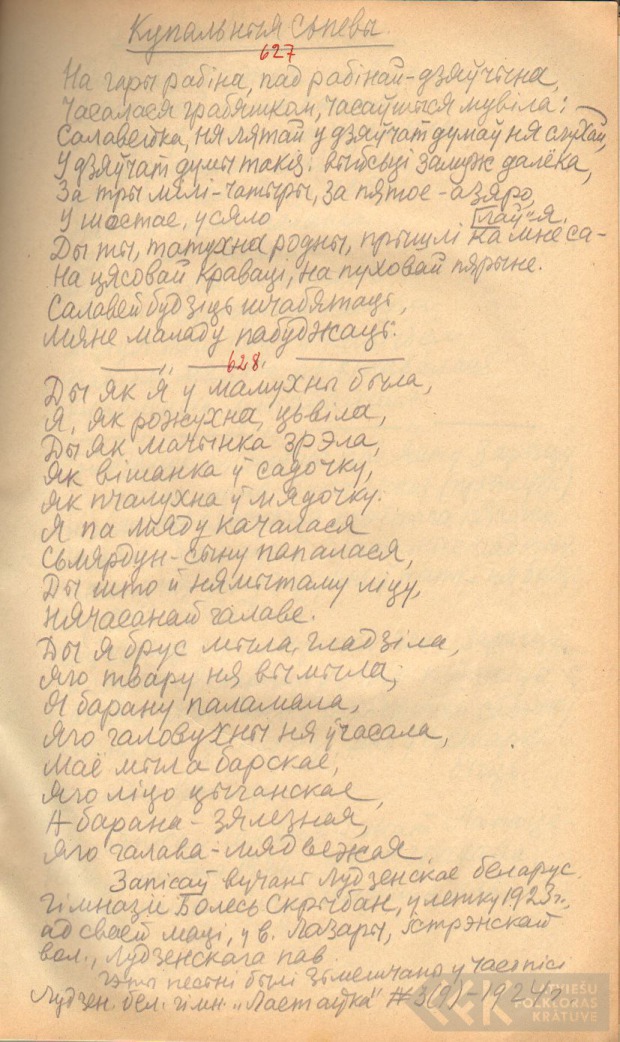 Купальныя сьпевы.
627
На гары рабіна, пад рабінай-дзяўчына,
Часалася грабяшком, часаўшыся мувіла:
Салавейка, ня лятай у дзяўчат думаў ня слухай,
У дзяўчат думы такія: выйсьці замуж далёка,
За тры мілі-чатыры, за пятое-азяро,
У шостае, усяло
Ды ты, татухна родны, прышлі па мне са-
лаў"я.
На цясовай краваці, на пуховай пярыне.
Салавей будзіць шчабятаць,
Мяне маладу пабуджаць.
628.
Ды як я ў мамухны была,
Я, як рожухна, цьвіла,
Ды як мачынка зрэла,
Як вішанка ў садочку,
Як пчалухна ў мядочку.
Я па мяду качалася
Сьмярдун-сыну папалася,
Ды што й нямытаму ліцу,
Нячасанай галаве.
Ды я брус мыла гладзіла,
Яго твару ня вымыла;
Я барану паламала,
Яго галовухны ня ўчасала,
Маё мыла барскае,
Яго ліцо цыганскае,
А барана-зялезная,
Яго галава-мядвежая.
Запісаў вучань Лудзенскае беларус.
гімназіі Болесь Скрыбан, улетку 1923 г.,
ад сваей маці, у в. Лазары, Істрэнскай
вол., Лудзенскага пав.
Гэты песні былі зьмешчано у часпісі
Лудзен. бел. гімн. „Ластаўка" № 3(9)-1924 г.
LATVIEŠU
FOLKLORAS
KRĀTUVE